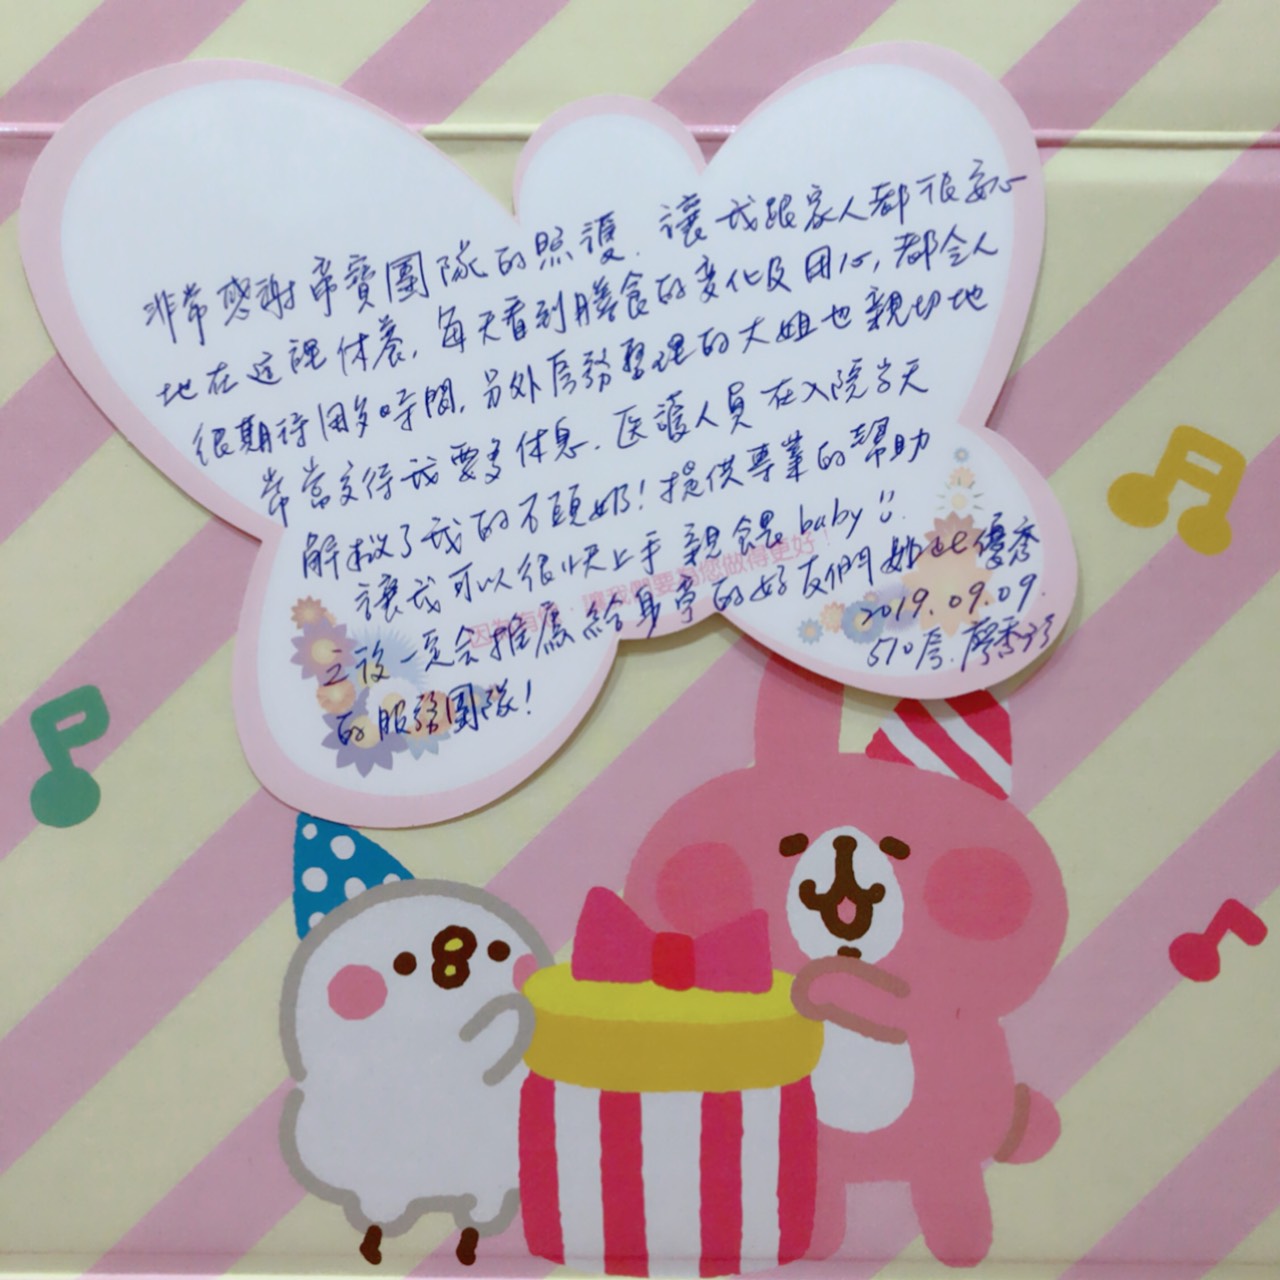 非常感謝帝寶團隊的照護、讓我跟家人都很安心
地在這裡休養, 每天看到膳食的變化及用心, 都令人
很期待用多時間, 另外房務整理的大姐也親切地
常常交待我要多休息、医護人員在入院当天
解救了我的石頭奶! 提供專業的幫助
讓我可以很快上手親餵baby
之後一定会推薦給身旁的好友們
的服務團隊!
優秀
2019.09.09.
510房.廖
因為有您,讓我們要為您做得更好!